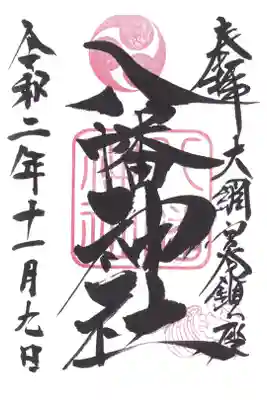 奉拝 大網総鎮座
八幡神社
令和二年十一月九日